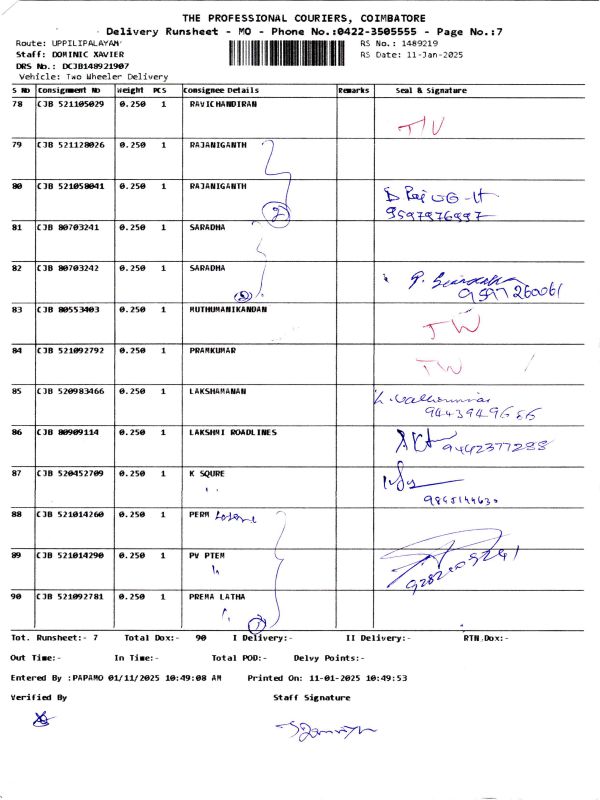 THE PROFESSIONAL COURIERS, COIMBATORE
Delivery Runsheet - MO - Phone No.:0422-3505555 - Page No.:7
Route: UPPILIPALAYAM
RS No.: 1489219
Staff: DOMINIC XAVIER
RS Date: 11-Jan-2025
DRS No.: DCJB148921907
Vehicle: Two Wheeler Delivery
S No Consignment No Weight PCS Consignee Details Remarks Seal & Signature
78 CJB 521105029 0.250 1 RAVICHANDIRAN
79 CJB 521128026 0.250 1 RAJANIGANTH
80 CJB 521058041 0.250 1 RAJANIGANTH
2
9597976997
81 CJB 80703241 0.250 1 SARADHA
82 CJB 80703242 0.250 1 SARADHA
9597260061
83 CJB 80553403 0.250 1 MUTHUMANIKANDAN
TW
84 CJB 521092792 0.250 1 PRAMKUMAR
TW
85 CJB 520983466 0.250 1 LAKSHAMANAN
86 CJB 80909114 0.250 1 LAKSHMI ROADLINES
9442377288
87 CJB 520452709 0.250 1 K SQURE
88 CJB 521014260 0.250 1 PERM
89 CJB 521014290 0.250 1 PV PTEM
90 CJB 521092781 0.250 1 PREMA LATHA
Tot. Runsheet:- 7 Total Dox:- 90 I Delivery:- II Delivery:- RTN Dox:-
Out Time:- In Time:- Total POD:- Delvy Points:-
Entered By :PAPAMO 01/11/2025 10:49:08 AM Printed On: 11-01-2025 10:49:53
Verified By Staff Signature